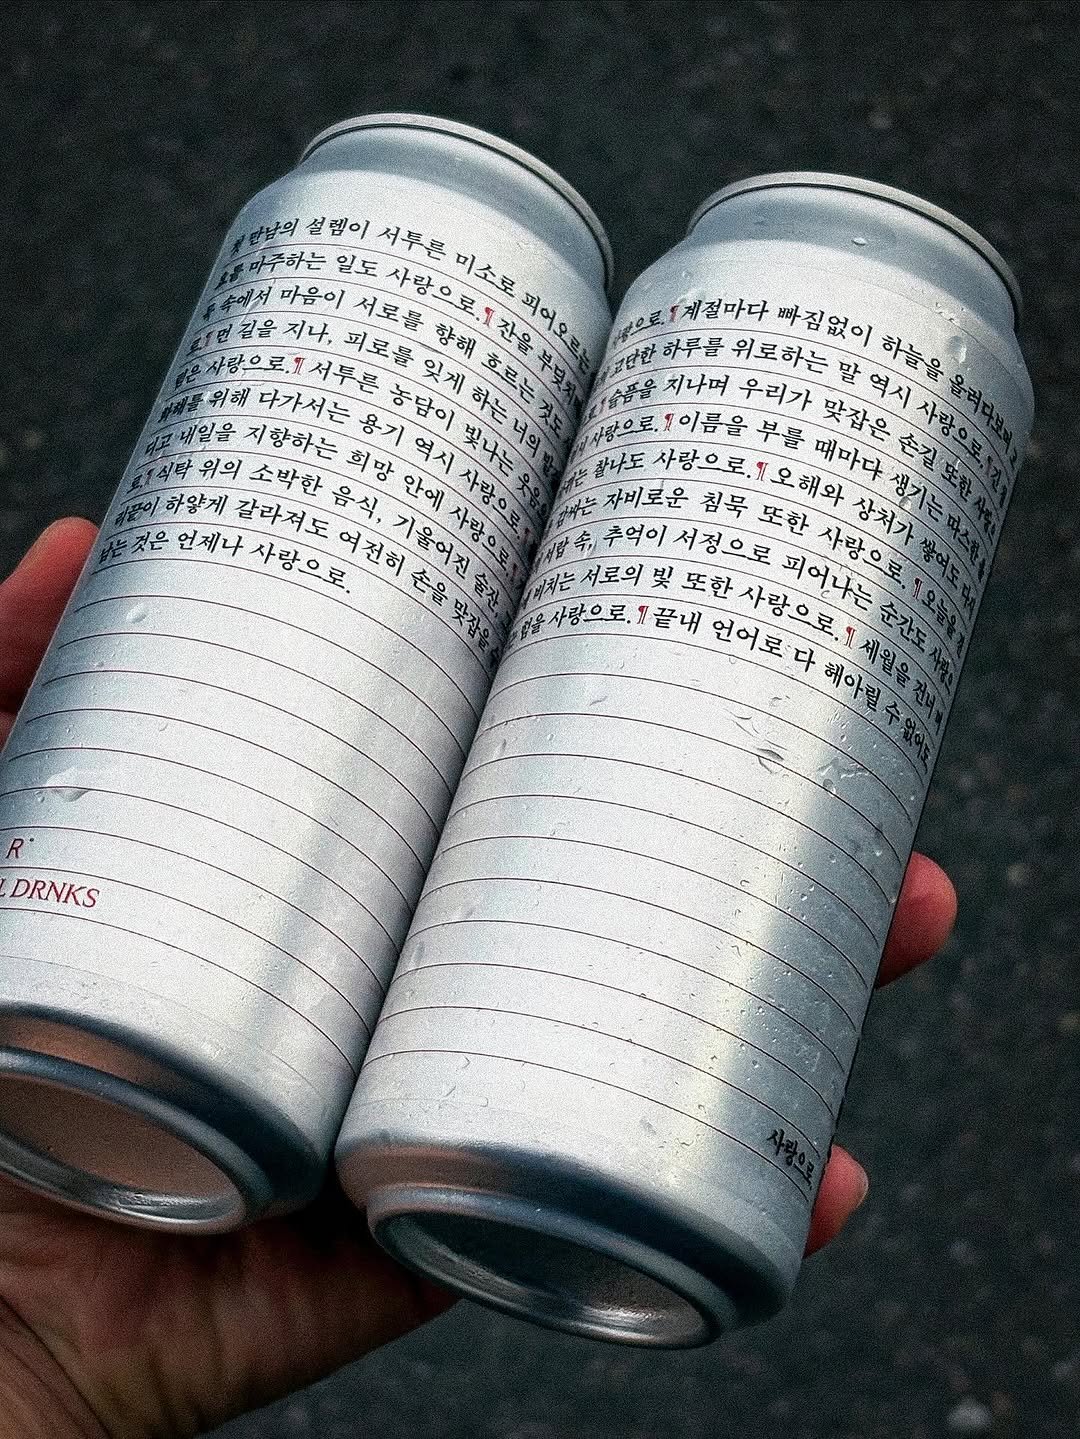 첫 만남의 설렘이 서투른 미소로 피어오르는
마주하는 일도 사랑으로.¶ 잔을 부딪치
속에서 마음이 서로를 향해 흐르는 것도
¶먼 길을 지나, 피로를 잊게 하는 너의
사랑으로.¶ 서투른 농담이 빛나는 웃음
화해를 위해 다가서는 용기 역시 사랑으로
내일을 지향하는 희망 안에 사랑으로
¶식탁 위의 소박한 음식, 기울어진 술잔
하얗게 갈라져도 여전히 손을 맞잡을 수
남는 것은 언제나 사랑으로.
R
DRNKS
사랑으로.¶계절마다 빠짐없이 하늘을 올려다보며
고단한 하루를 위로하는 말 역시 사랑으로.
¶슬픔을 지나며 우리가 맞잡은 손길 또한
사랑으로.¶이름을 부를 때마다 생기는 따스한
찰나도 사랑으로.¶오해와 상처가 쌓여도 다시
감싸는 자비로운 침묵 또한 사랑으로. ¶오늘을
속, 추억이 서정으로 피어나는 순간도
비치는 서로의 빛 또한 사랑으로.¶세월을 건너
힘을 사랑으로.¶끝내 언어로 다 헤아릴 수 없어도
사랑으로